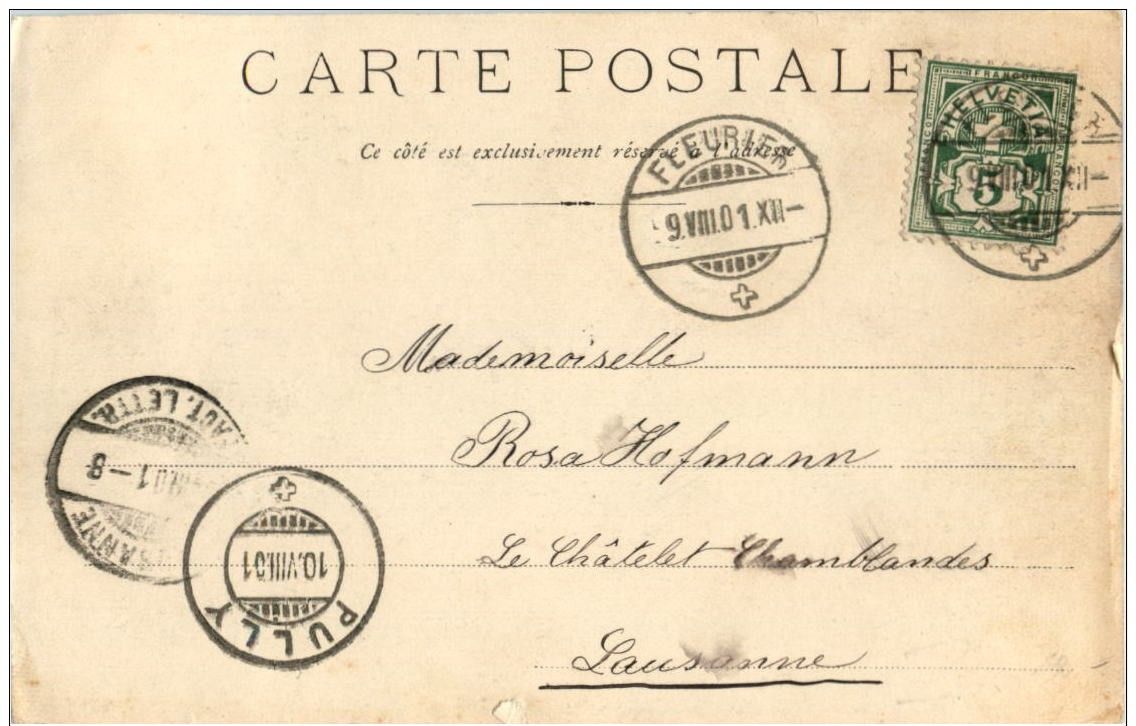 CARTE POSTALE
Ce côté est exclusivement réservé à l'adresse
FRANCO
HELVETIA
FRANCO
FRANCO
5
FLEURIER
9.VIII.01.XII—
9.VIII.01.XII—
Mademoiselle
Rosa Hofmann
Le Châtelet Chamblandes
Lausanne
LETTR.
01—8
SANNE
10.VIII.01
PULLY